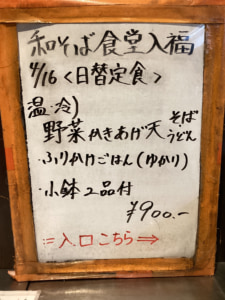 和そば食堂入福
4/16<日替定食>
温・冷)
野菜かきあげ天 そば
うどん
・ふりかけごはん(ゆかり)
・小鉢2品付
¥900.-
:=入口こちら⇒